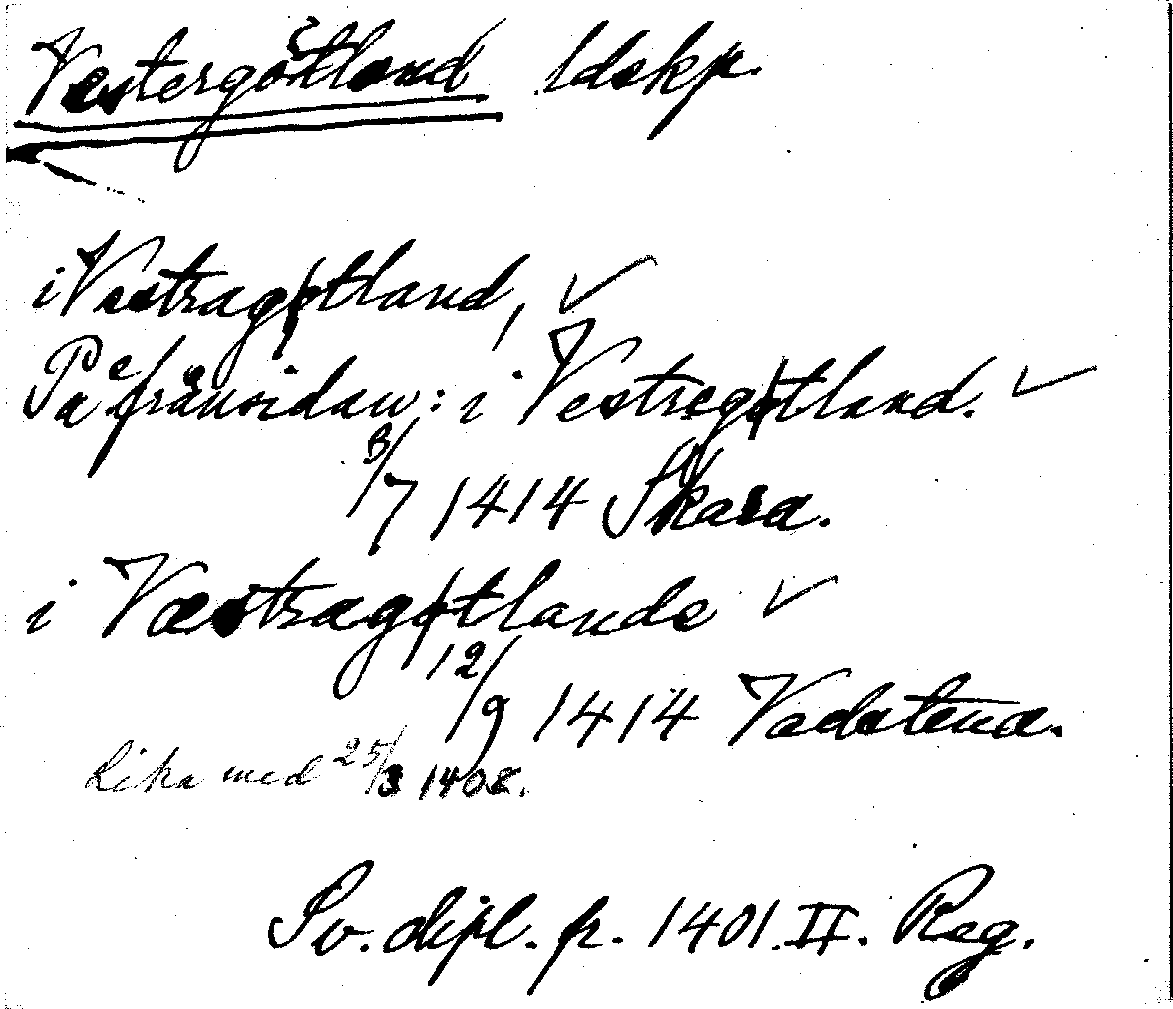 Vestergötland ldskp.
i Vestragøtland, ✓
På frånsidan: i Vestregøtland. ✓
3/7 1414 Skara.
i Væstrægøtlande ✓
12/9 1414 Vadstena.
Lika med 25/3 1408.
Sv. dipl. fr. 1401 II. Reg.